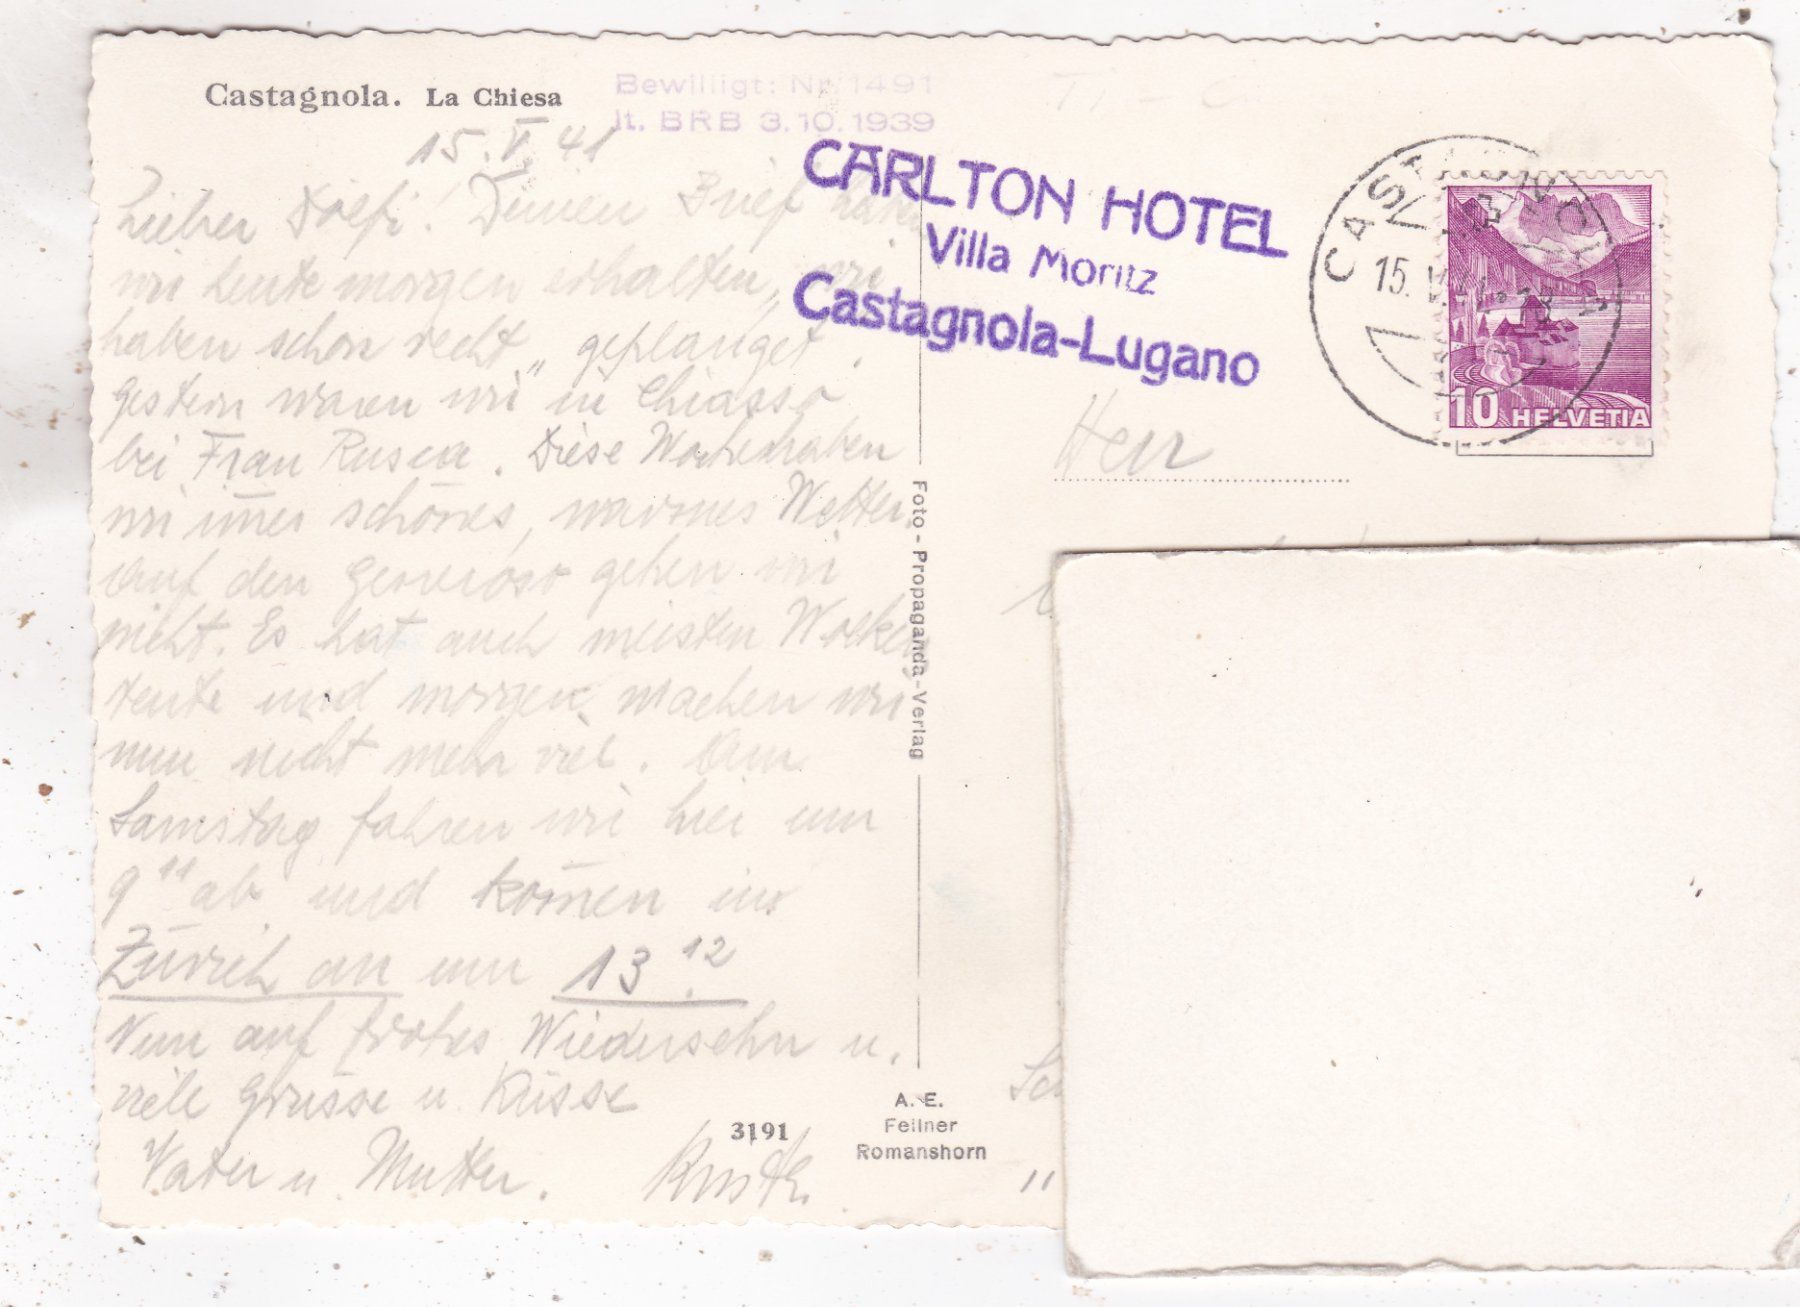 Castagnola. La Chiesa
Bewilligt: Nr. 1491
lt. BRB 3.10.1939
15. V. 41
CARLTON HOTEL
Villa Moritz
Castagnola-Lugano
CASTAGNOLA
15. V. 41
10 HELVETIA
Lieber Dölfi! Deinen Brief haben
wir heute morgen erhalten, wir
haben schon recht „geplanget".
Gestern waren wir in Chiasso
bei Frau Rusca. Diese Woche haben
wir im̄er schönes, warmes Wetter.
Auf den Generoso gehen wir
nicht. Es hat auch meisten Wolken
Heute und morgen machen wir
nun nicht mehr viel. Am
Samstag fahren wir hier um
9¹¹ ab und kom̄en in
Zürich an um 13¹²
Nun auf frohes Wiedersehn u.
viele Grüsse u. Küsse
Vater u. Mutter.
Herr
Foto-Propaganda-Verlag
3191
A. E.
Fellner
Romanshorn